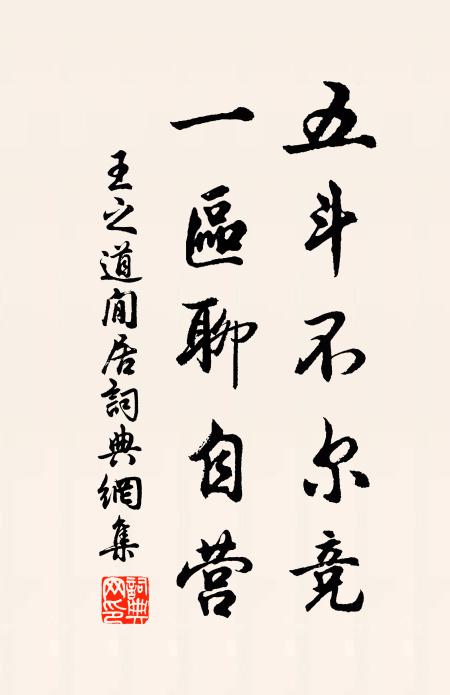 五斗不尔竞
一區聊自营
王之道閒居詞典網集
詞典网印